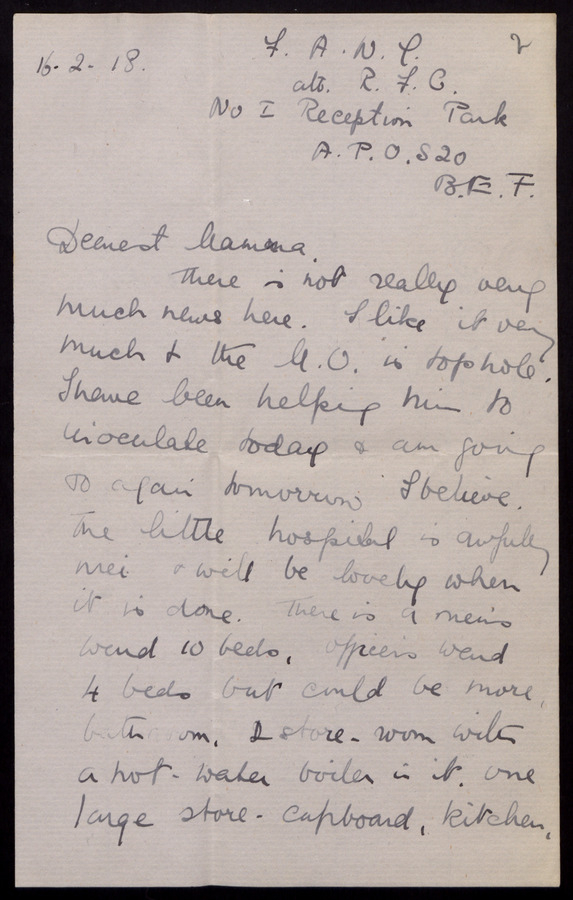 2
16-2-18.
F. A. N. Y.
att. R. F. C.
No I Reception Park
A. P. O. S20
B. E. F.
Dearest Mamma.
There is not really very
much news here. I like it very
much & the M.O. is tophole.
I have been helping him to
inoculate today & am going
to again tomorrow I believe.
The little hospital is awfully
nice & will be lovely when
it is done. There is a men's
ward 10 beds, officers ward
4 beds but could be more,
bath room, store-room with
a hot-water boiler in it. one
large store-cupboard, kitchen,